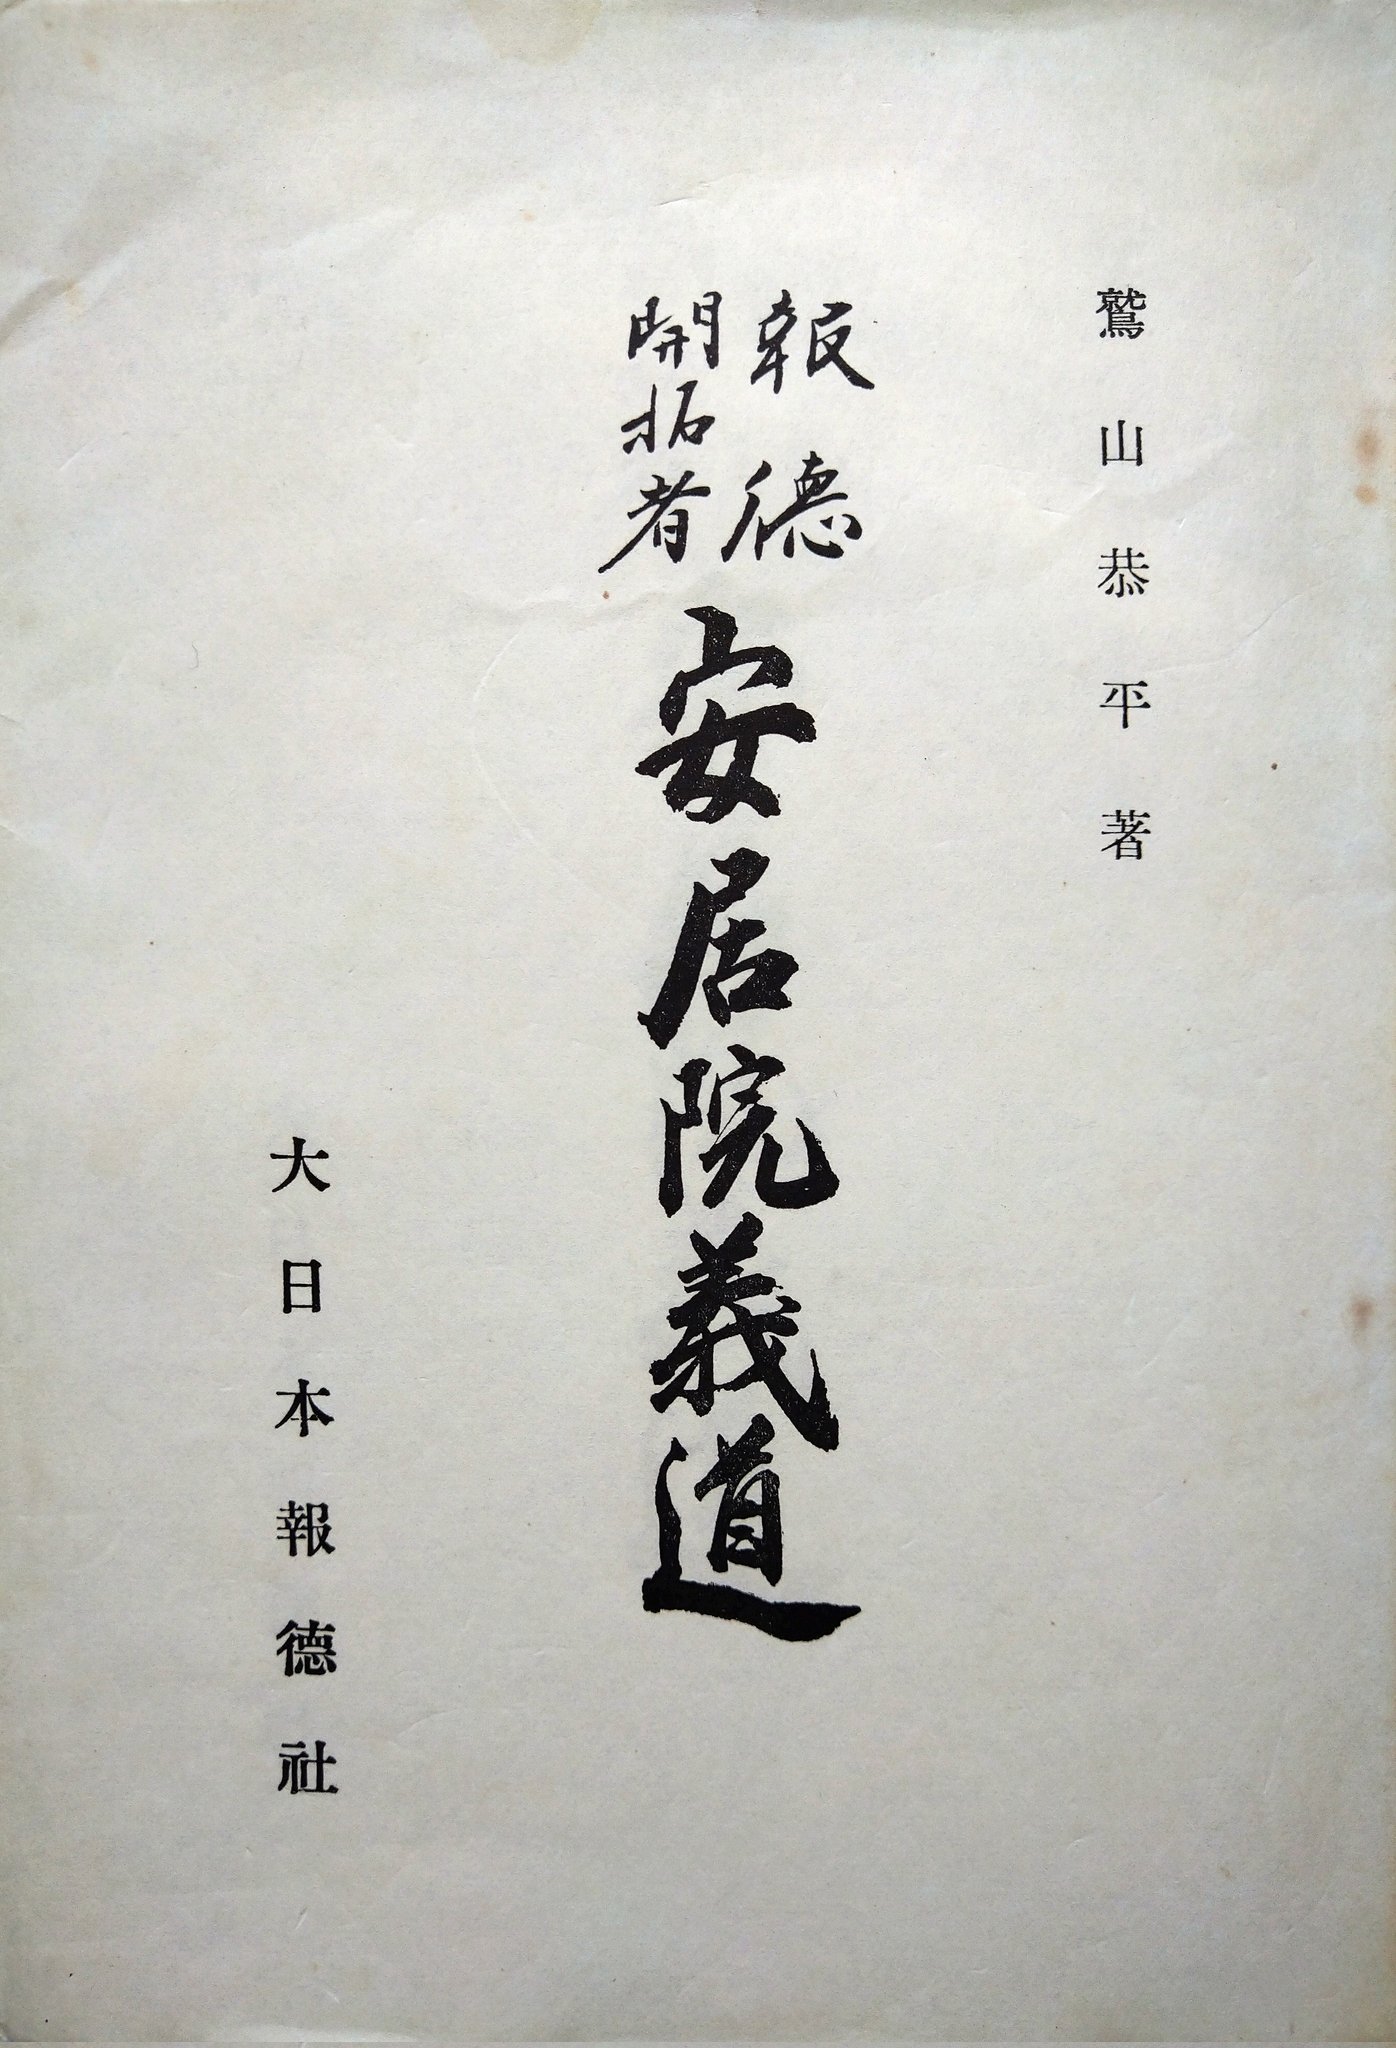 鷲山恭平著
報德
開拓者
安居院義道
大日本報德社